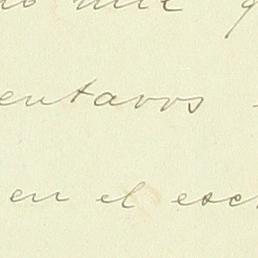 mil
entavos
en el esc